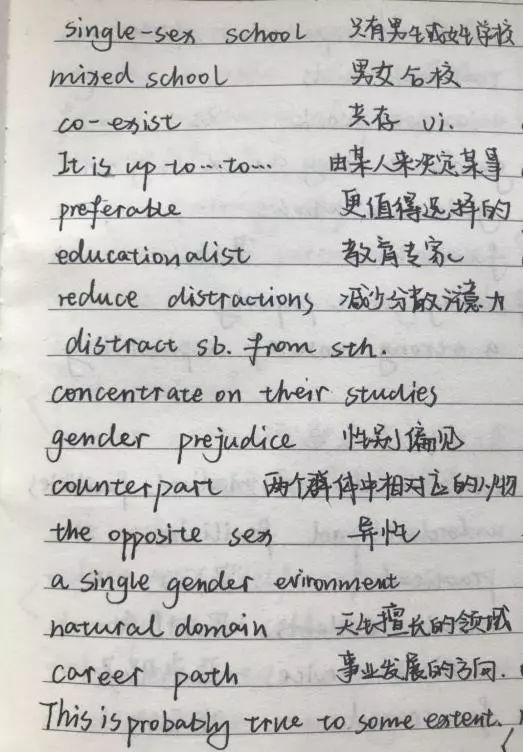 single-sex school 只有男生或女生学校
mixed school 男女合校
co-exist 共存 vi.
It is up to...to... 由某人来决定某事
preferable 更值得选择的
educationalist 教育专家
reduce distractions 减少分散注意力
distract sb. from sth.
concentrate on their studies
gender prejudice 性别偏见
counterpart 两个群体中相对应的人/物
the opposite sex 异性
a single gender evironment
natural domain 天生擅长的领域
career path 事业发展的方向.
This is probably true to some extent.